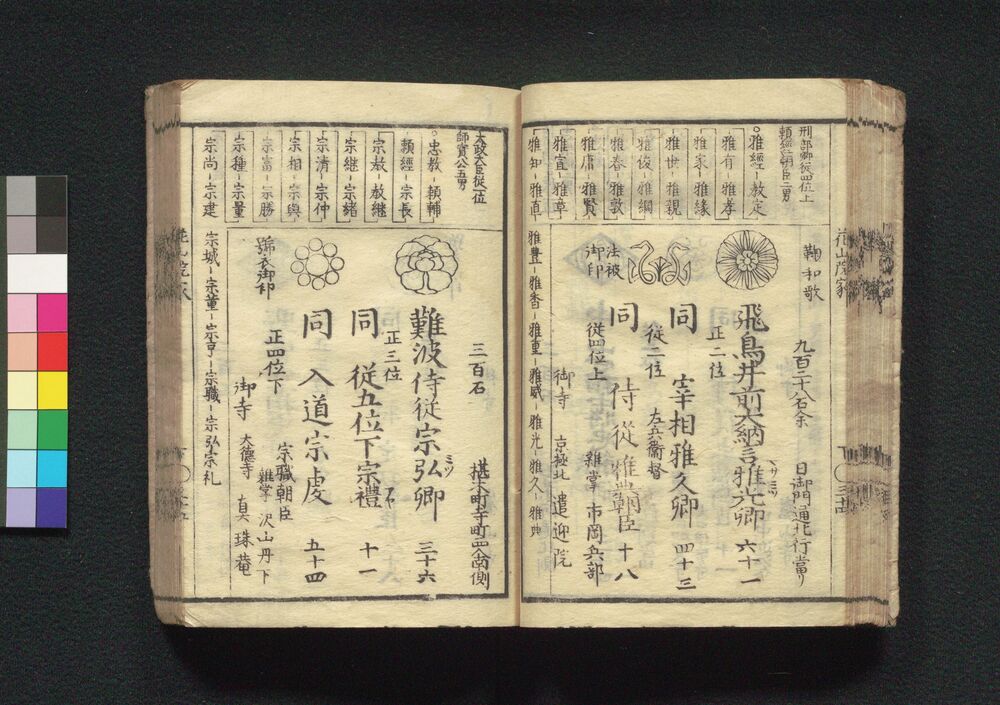 花山院家
刑部卿従四位上
頼經朝臣二男
雅經-教定
雅有-雅孝
雅家-雅緣
雅世-雅親
雅俊-雅綱
雅春-雅敦
雅庸-雅賢
雅宣-雅章
雅知-雅直
鞠和歌
九百二十八石余
日御門通北行當り
飛鳥井前大納言雅光卿
六十一
正二位
同
宰相雅久卿
四十三
従二位
左兵衛督
同
侍従雅典朝臣
十八
従四位上
法被
御印
雜掌
市岡兵部
御寺
京極北
遣迎院
雅豊-雅香-雅重-雅威-雅光-雅久-雅典
太政大臣従一位
師實公五男
忠教-頼輔
頼經-宗長
宗教-教継
宗継-宗緒
宗清-宗仲
宗相-宗興
宗富-宗勝
宗種-宗量
宗尚-宗建
三百石
椹木町寺町西入南側
難波侍従宗弘卿
三十六
正三位
同
従五位下宗禮
十一
同
入道宗虔
五十四
號衣御印
正四位下
宗職朝臣
雜掌
沢山丹下
御寺
大徳寺
真珠菴
宗城-宗董-宗享-宗職-宗弘-宗礼